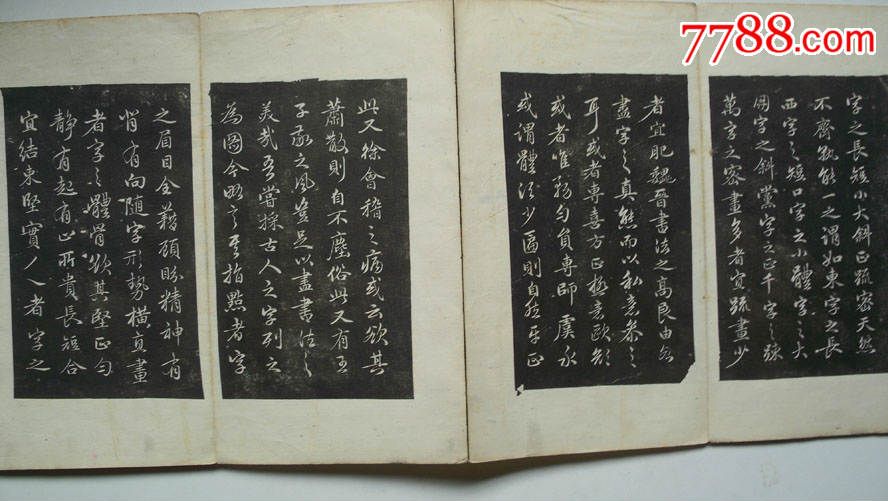 7788.com
字之長短小大斜正疏密天然
不齊孰能一之謂如東字之長
西字之短口字之小體字之大
朋字之斜黨字之正千字之疎
萬字之密畫多者宜疏畫少
者宜肥魏晉書法之高良由各
盡字之真態而以私意參之
耳或者專喜方正極意歐顏
或者唯務勻員專師虞永
或謂體法少匾則自然平正
此又徐會稽之病或云欲其
蕭散則自不塵俗此又有王
子敬之風豈足以盡書法之
美哉吾嘗採古人之字列之
為圖今略言其指點者字
之眉目全藉顧盼精神有
背有向隨字形勢橫直畫
者字之體骨欲其堅正勻
靜有起有止所貴長短合
宜結束堅實丿乀者字之